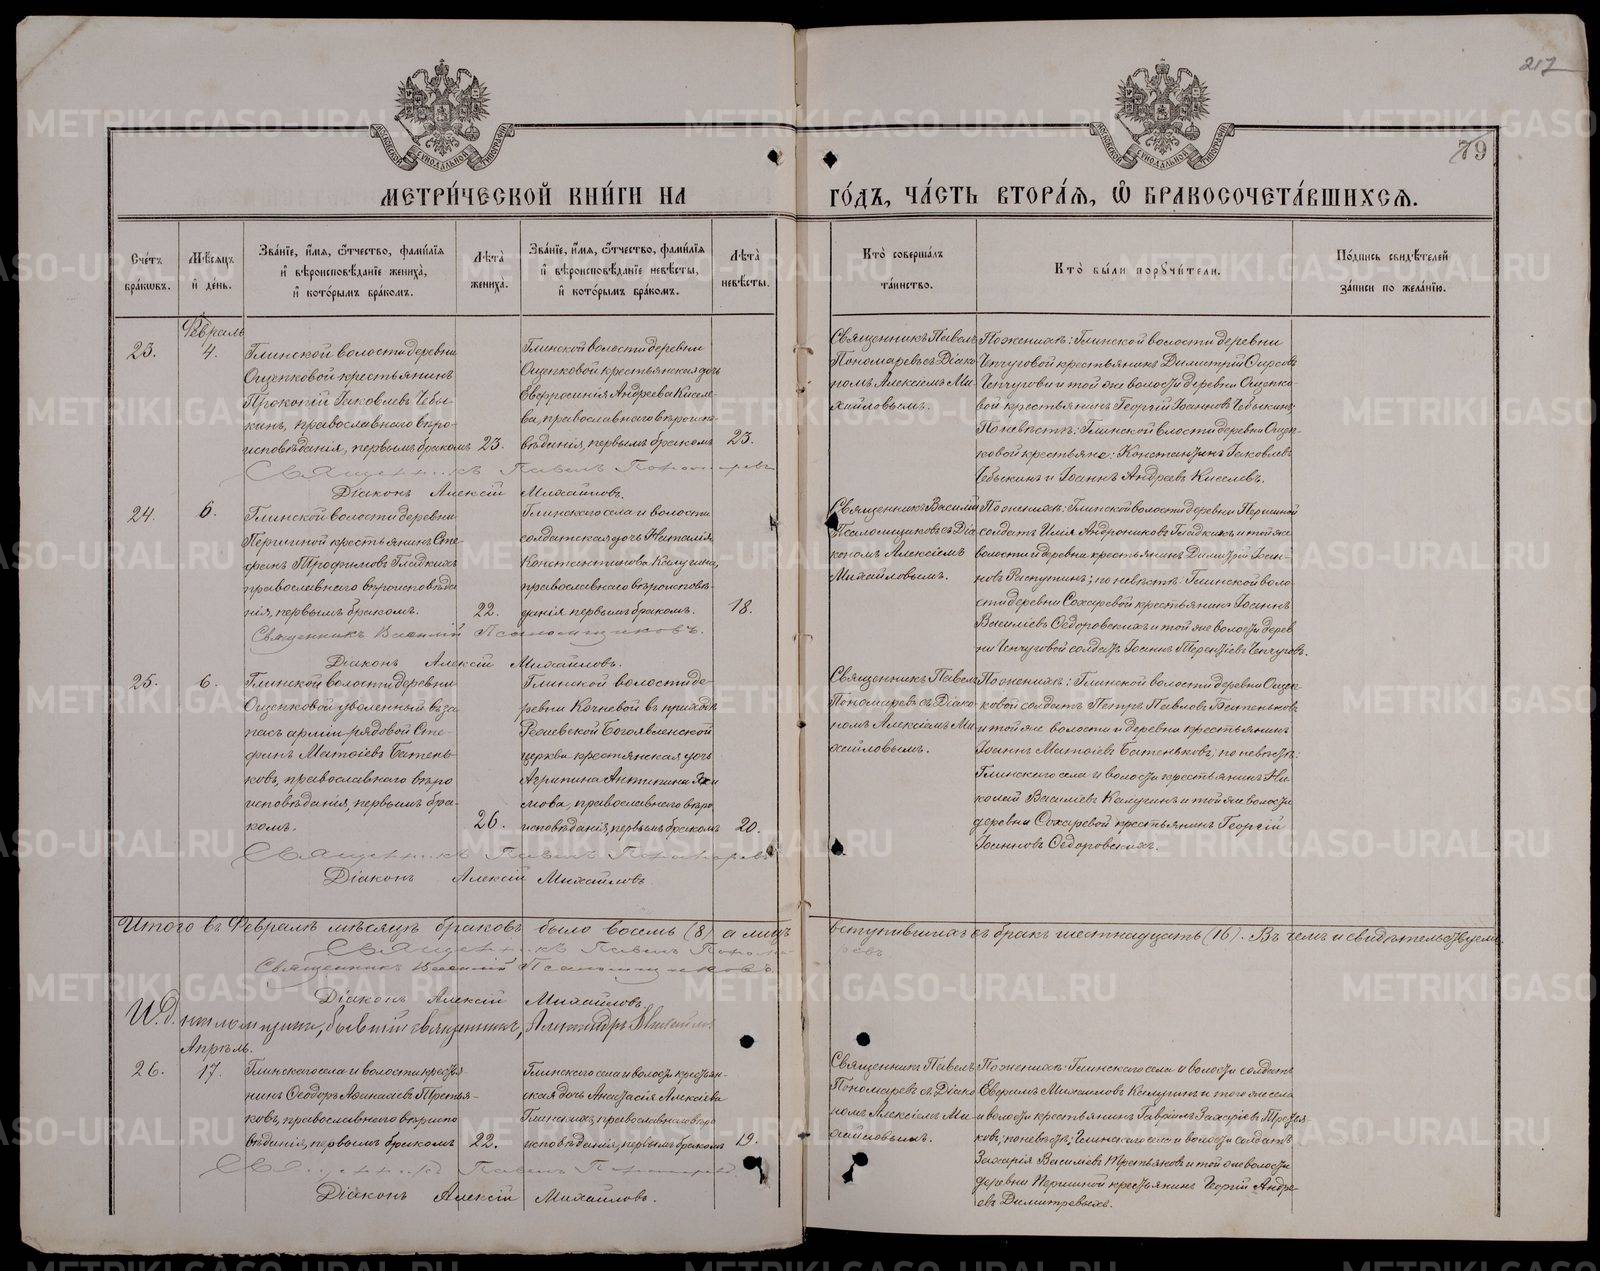 217
79
МОСКОВСКОЙ СѴНОДАЛЬНОЙ ТИПОГРАФІИ
МОСКОВСКОЙ СѴНОДАЛЬНОЙ ТИПОГРАФІИ
МЕТРИ́ЧЕСКОЙ КНИ́ГИ НА
ГО́ДЪ, ЧА́СТЬ ВТОРА́Ѧ, Ѽ БРАКОСОЧЕТА́ВШИХСѦ.
Сче́тъ бра́кѡвъ.
Мѣ́сѧцъ и҆ де́нь.
Зва́нїе, и҆́мѧ, ѻ҆́тчество, фами́лїѧ
и҆ вѣроисповѣ́данїе жениха̀,
и҆ кото́рымъ бра́комъ.
Лѣта̀ жениха̀.
Зва́нїе, и҆́мѧ, ѻ҆́тчество, фами́лїѧ
и҆ вѣроисповѣ́данїе невѣ́сты,
и҆ кото́рымъ бра́комъ.
Лѣта̀ невѣ́сты.
Кто̀ соверша́лъ та́инство.
Кто̀ бы́ли порꙋчи́тели.
По́дпись свидѣ́телей за́писи по жела́нїю.
Февраль
23.
4.
Глинской волости деревни
Ощепковой крестьянинъ
Прокопій Іаковлевъ Чебы-
кинъ, православнаго вѣро-
исповѣданія, первымъ бракомъ
23.
Глинской волости деревни
Ощепковой крестьянская дочь
Евфросинія Андреева Киселе-
ва, православнаго вѣроиспо-
вѣданія, первымъ бракомъ
23.
Священникъ Павелъ
Пономаревъ съ Діако-
номъ Алексіемъ Ми-
хайловымъ.
По женихѣ: Глинской волости деревни
Чепчуговой крестьянинъ Димитрій
Чепчуговъ и той же волости деревни Ощепко-
вой крестьянинъ Георгій Іоанновъ Чебыкинъ;
По невѣстѣ: Глинской волости деревни Ощеп-
ковой крестьяне: Константинъ Іаковлевъ
Чебыкинъ и Іоаннъ Андреевъ Киселевъ.
Священникъ Павелъ Пономаревъ
Діаконъ Алексій Михайловъ.
24.
6.
Глинской волости деревни
Першиной крестьянинъ Сте-
фанъ Трофимовъ Гладкихъ
православнаго вѣроисповѣда
нія, первымъ бракомъ.
22.
Глинскаго села и волости
солдатская дочь Наталія
Константинова Калугина,
православнаго вѣроисповѣ-
данія первымъ бракомъ.
18.
Священникъ Василій
Псаломщиковъ съ Діа
кономъ Алексіемъ
Михайловымъ.
По женихѣ: Глинской волости деревни Першиной
солдатъ Илія Андрониковъ Гладкихъ и той же
волости и деревни крестьянинъ Димитрій Іоан-
новъ Распутинъ; по невѣстѣ: Глинской воло
сти деревни Сохаревой крестьянинъ Іоаннъ
Василіевъ Ѳедоровскихъ и той же волости дерев
ни Чепчуговой солдатъ Іоаннъ Терентіевъ Чепчуговъ.
Священникъ Василій Псаломщиковъ.
Діаконъ Алексій Михайловъ.
25.
6.
Глинской волости деревни
Ощепковой уволенный въ за
пасъ арміи рядовой Сте-
фанъ Матѳіевъ Батень-
ковъ, православнаго вѣро
исповѣданія, первымъ бра-
комъ.
26.
Глинской волости де-
ревни Кочневой въ приходѣ
Режевской Богоявленской
церкви крестьянская дочь
Агрипина Антипина Яки
мова, православнаго вѣро
исповѣданія, первымъ бракомъ
20.
Священникъ Павелъ
Пономаревъ съ Діако-
номъ Алексіемъ Ми
хайловымъ.
По женихѣ: Глинской волости деревни Ощеп
ковой солдатъ Петръ Павловъ Батеньковъ
и той же волости и деревни крестьянинъ
Іоаннъ Матѳіевъ Батеньковъ; по невѣстѣ:
Глинскаго села и волости крестьянинъ Ни
колай Василіевъ Калугинъ и той же волости
деревни Сохаревой крестьянинъ Георгій
Іоанновъ Ѳедоровскихъ.
Священникъ Павелъ Пономаревъ
Діаконъ Алексій Михайловъ
Итого въ Февралѣ мѣсяцѣ браковъ было восемь (8) а лицъ вступившихъ въ бракъ шестнадцать (16). Въ чемъ и свидѣтельствуемъ
Священникъ Павелъ Пономаревъ
Священникъ Василій Псаломщиковъ
Діаконъ Алексій Михайловъ
И. д. псаломщика, бывшій священникъ, Александръ
Апрѣль.
26.
17.
Глинскаго села и волости кресть-
янинъ Ѳеодоръ Аѳанасіевъ Третья-
ковъ, православнаго вѣроиспо
вѣданія, первымъ бракомъ
22.
Глинскаго села и волости крестьян-
ская дочь Анастасія Алексіева
Глинскихъ, православнаго вѣро
исповѣданія, первымъ бракомъ
19.
Священникъ Павелъ
Пономаревъ съ Діако
номъ Алексіемъ Ми-
хайловымъ.
По женихѣ: Глинскаго села и волости солдатъ
Михаиловъ Калугинъ и того же села
и волости крестьянинъ Гавріилъ Захаріевъ Третья
ковъ; по невѣстѣ: Глинскаго села и волости солдатъ
Захарія Василіевъ Третьяковъ и той же волости
деревни Першиной крестьянинъ Георгій Андре
евъ Димитревыхъ.
Священникъ Павелъ Пономаревъ
Діаконъ Алексій Михайловъ.
METRIKI.GASO-URAL.RU